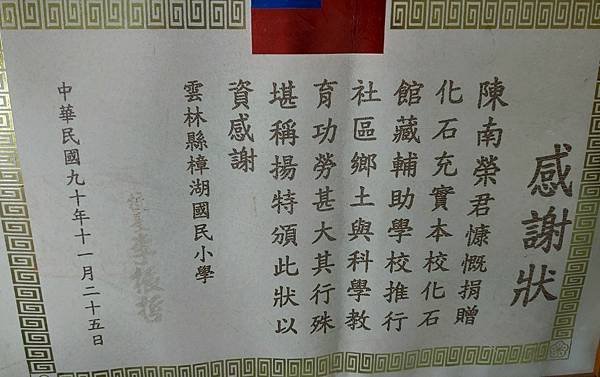 感謝狀
陳南榮君慷慨捐贈
化石充實本校化石
館藏輔助學校推行
社區鄉土與科學教
育功勞甚大其行殊
堪稱揚特頒此狀以
資感謝
雲林縣樟湖國民小學
李俊哲
中華民國九十年十一月二十五日